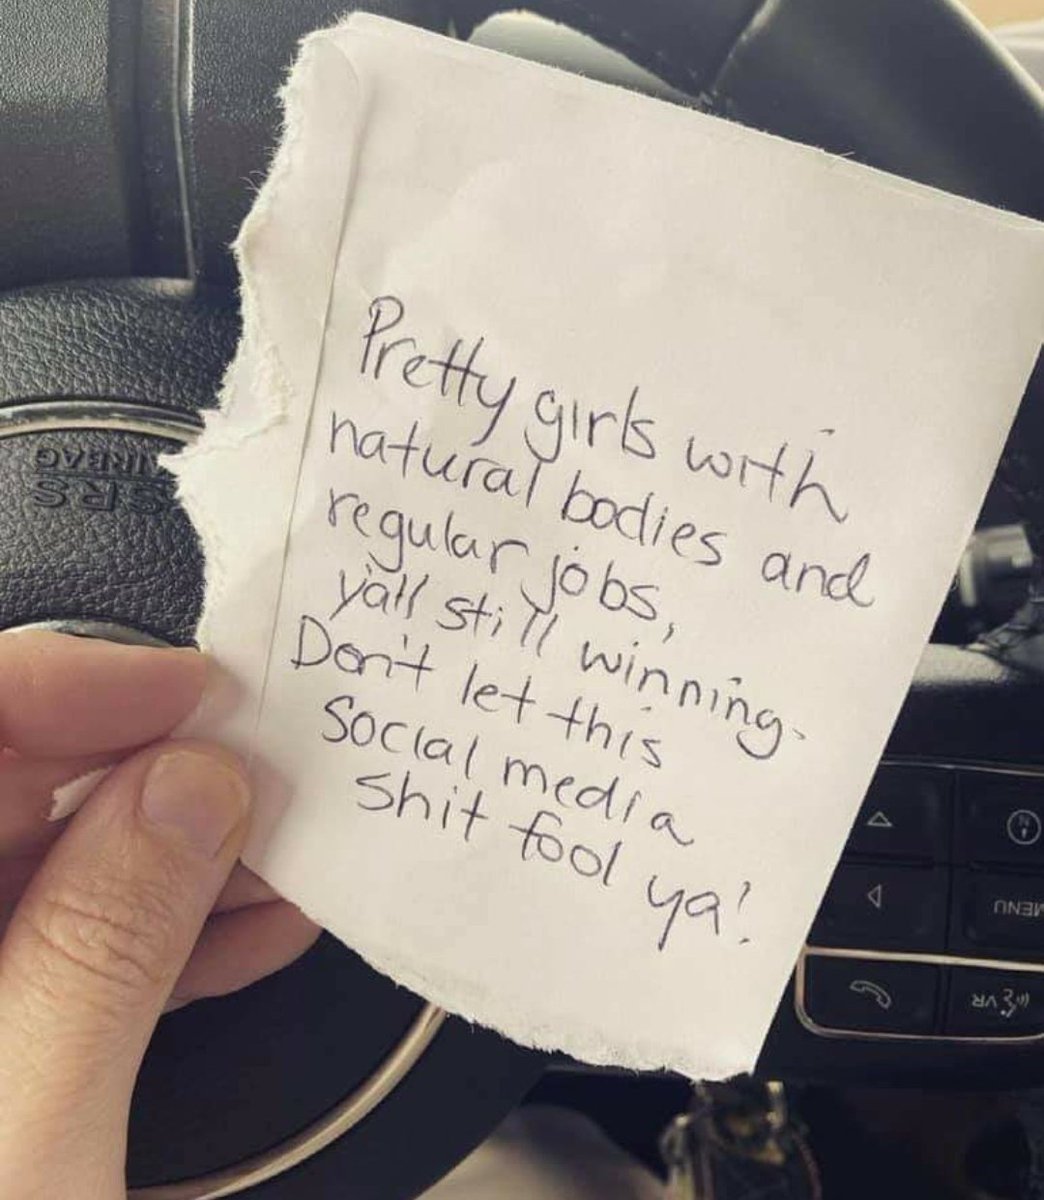 Pretty girls with
natural bodies and
regular jobs,
y'all still winning.
Don't let this
Social media
Shit fool ya!
SRS
AIRBAG
MENU
VR